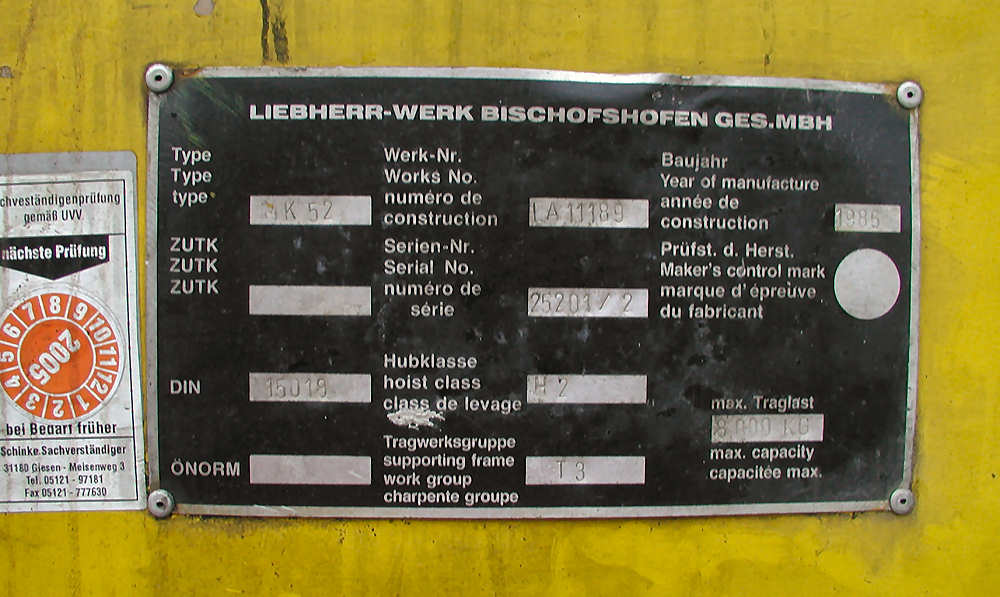 LIEBHERR-WERK BISCHOFSHOFEN GES.MBH
Type
Type
type
MK 52
Werk-Nr.
Works No.
numéro de
construction
LA 11189
Baujahr
Year of manufacture
année de
construction
1986
ZUTK
ZUTK
ZUTK
Serien-Nr.
Serial No.
numéro de
série
25201/2
Prüfst. d. Herst.
Maker's control mark
marque d'épreuve
du fabricant
DIN
15019
Hubklasse
hoist class
class de levage
H 2
max. Traglast
8.000 KG
max. capacity
capacitée max.
ÖNORM
Tragwerksgruppe
supporting frame
work group
charpente groupe
T 3
chverständigenprüfung
gemäß UVV
nächste Prüfung
1 2 3 4 5 6 7 8 9 10 11 12
2005
bei Bedarf früher
Schinke.Sachverständiger
31180 Giesen - Meisenweg 3
Tel. 05121 - 97181
Fax 05121 - 777630